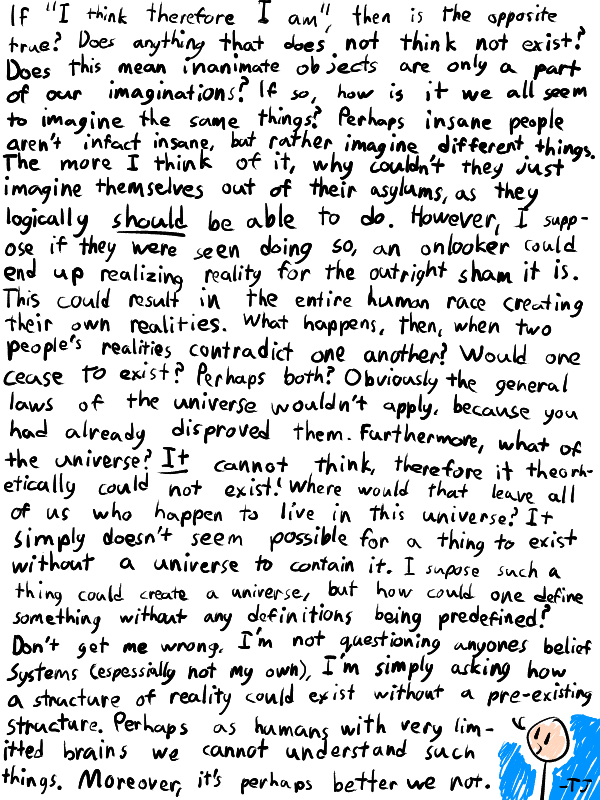 If "I think therefore I am", then is the opposite
true? Does anything that does not think not exist?
Does this mean inanimate objects are only a part
of our imaginations? If so, how is it we all seem
to imagine the same things? Perhaps insane people
aren't infact insane, but rather imagine different things.
The more I think of it, why couldn't they just
imagine themselves out of their asylums, as they
logically should be able to do. However, I supp-
ose if they were seen doing so, an onlooker could
end up realizing reality for the outright sham it is.
This could result in the entire human race creating
their own realities. What happens, then, when two
people's realities contradict one another? Would one
cease to exist? Perhaps both? Obviously the general
laws of the universe wouldn't apply, because you
had already disproved them. Furthermore, what of
the universe? It cannot think, therefore it theorh-
etically could not exist! Where would that leave all
of us who happen to live in this universe? It
simply doesn't seem possible for a thing to exist
without a universe to contain it. I supose such a
thing could create a universe, but how could one define
something without any definitions being predefined?
Don't get me wrong, I'm not questioning anyones belief
systems (espessially not my own), I'm simply asking how
a structure of reality could exist without a pre-existing
structure. Perhaps as humans with very lim-
itted brains we cannot understand such
things. Moreover, it's perhaps better we not.
-TJ